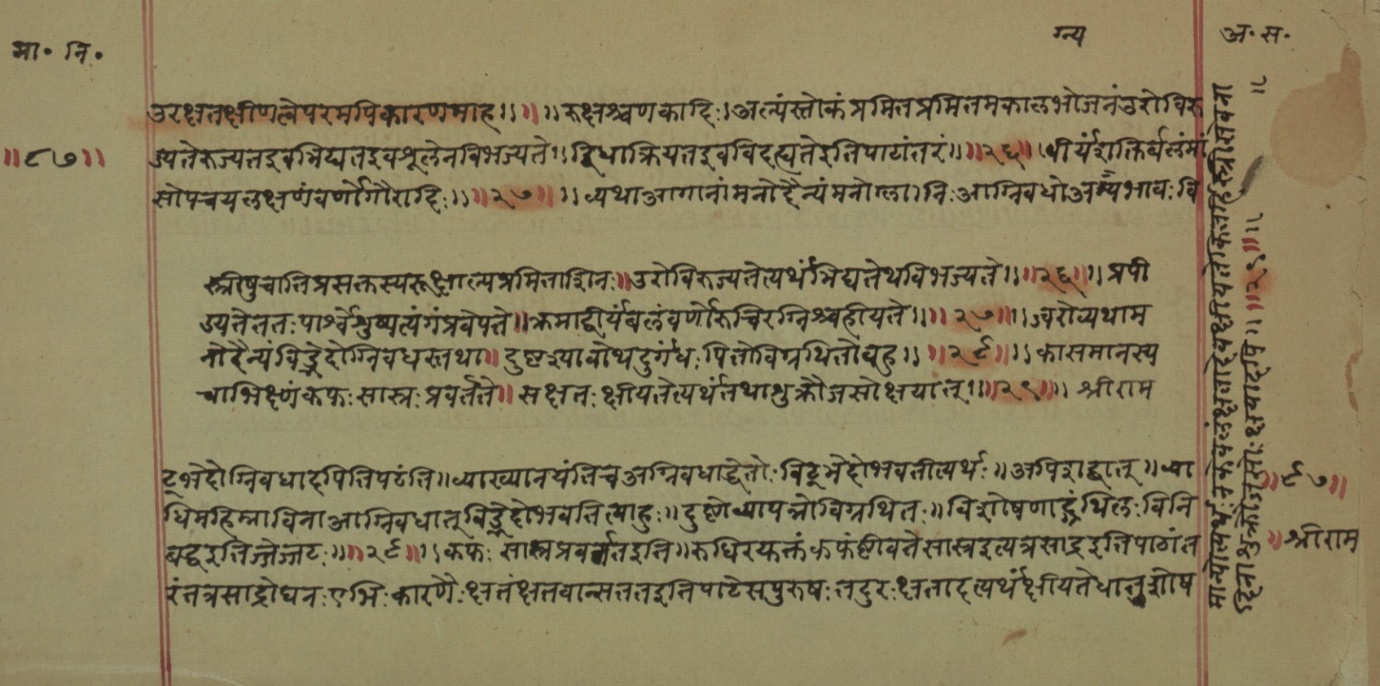 मा॰ नि॰
ग्न्य
अ॰ स॰
उरक्षतक्षीणत्वेपरमपिकारणमाह ।। ॥ ।। रुक्षश्चणकादिः । अल्पंस्तोकं प्रमितप्रमितमकालभोजनंउरोविरु
॥८७॥
ज्यतेरुज्यतइवभिद्यतइवशूलेनविभज्यते ।। द्विधाक्रियतइवविदह्यतेइतिपाठांतरं ॥ ॥२६॥ वीर्यंशक्तिर्बलंमां
सोपचयलक्षणंवर्णोगौरादिः ।। ॥२७॥ ।। व्यथाआगानांमनोदैन्यंमनोग्लानिः आग्निवधोअग्न्यभावः वि
स्त्रीषुचातिप्रसक्तस्यरूक्षाल्पप्रमिताशिनः ॥ उरोविरुज्यतेत्यर्थंभिद्यतेथविभज्यते ।। ॥२६॥ ।। प्रपी
ड्यतेततःपार्श्वेशुष्यत्यंगंप्रवेपते ॥ क्रमाद्वीर्यंबलंवर्णोरुचिरग्निश्चहीयते ।। ॥२७॥ ।। ज्वरोव्यथाम
नोदैन्यंविड्भेदोग्निवधस्तथा ॥ दुष्टःश्यावोथदुर्गंधः पितोविग्रथितोबहु ।। ॥२८॥ ।। कासमानस्य
चाभिक्ष्णंकफःसास्रः प्रवर्तते ॥ सक्षतः क्षीयतेत्यर्थंतथाशुक्रौजसोक्षयात् ।। ॥२९॥ ।। श्रीराम
ट्भेदोग्निवधादपितिपठंति ॥ व्याख्यानयंतिचअग्निवधाद्धेतोः विट्भेदोभवतीत्यर्थः ॥ अपिशब्दात् ॥ व्या
धिमहिम्नाविनाआग्निवधात्विड्भेदोभवतित्याहुः ॥ दुष्टोव्यापन्नोविग्रथितः ॥ विशोषणाद्ग्रंथिलः विनि
बद्धइतिज्जेज्जटः ॥ ॥२८॥ ।। कफः सास्रप्रवर्ततइति ॥ रुधिरयक्तंकफंष्टीवतेसास्रइत्यत्रसाद्रइतिपाठांत
रंतत्रसाद्रोघनः एभिः कारणैः क्षतंक्षतवान्सततइतिपाठेसपुरुषः तदुरः क्षतादत्यर्थंक्षीयतेधातुशोष
॥८७॥
॥ श्रीराम